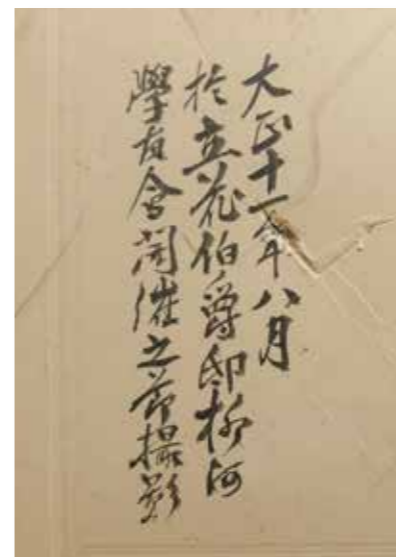 大正十一年八月
於立花伯爵邸柳河
學友會開催之節撮影